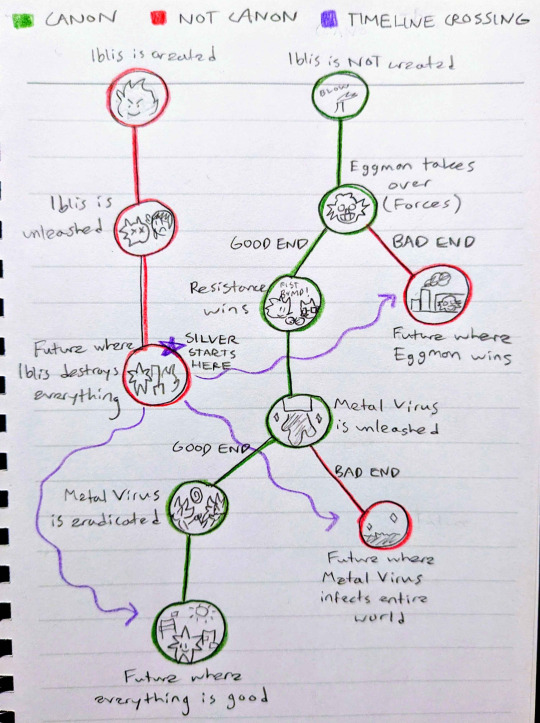 CANON
NOT CANON
TIMELINE CROSSING
Iblis is created
Iblis is NOT created
BLOW
Iblis is
unleashed
Eggman takes
over
(Forces)
GOOD END
BAD END
Resistance
wins
FIST
BUMP!
Future where
Eggman wins
Future where
Iblis destroys
everything
SILVER
STARTS
HERE
Metal Virus
is unleashed
GOOD END
BAD END
Metal Virus
is eradicated
Future where
Metal Virus
infects entire
world
Future where
everything is good